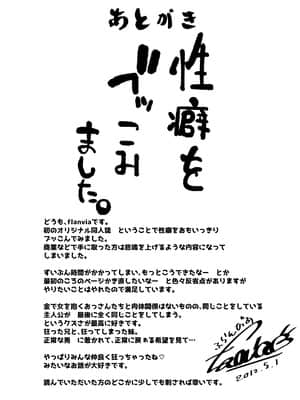 あとがき
性癖を
ブッこみ
ました。
どうも、flanviaです。
初のオリジナル同人誌　ということで性癖をおもいっきり
ブッこんでみました。
商業などで手に取った方は悲鳴を上げるような内容になって
しまいました。
ずいぶん時間がかかってしまい、もっとこうできたなー　とか
最初のこうのページかき直したいなー　と色々反省点がありますが
やりたいことはやれたので満足しています。
金で女を抱くおっさんたちと肉体関係はないものの、同じことをしている
主人公が　最後に全く同じことをしてしまう。
というクズさが最高に好きです。
狂った兄と、狂ってしまった妹。
正常な男　に惹かれて、正常に戻れる希望を見て…
やっぱりみんな仲良く狂っちゃったね♡
みたいなお話が大好きです。
読んでいただいた方のどこかに少しでも刺されば幸いです。
ふらんびあ
2012.5.1